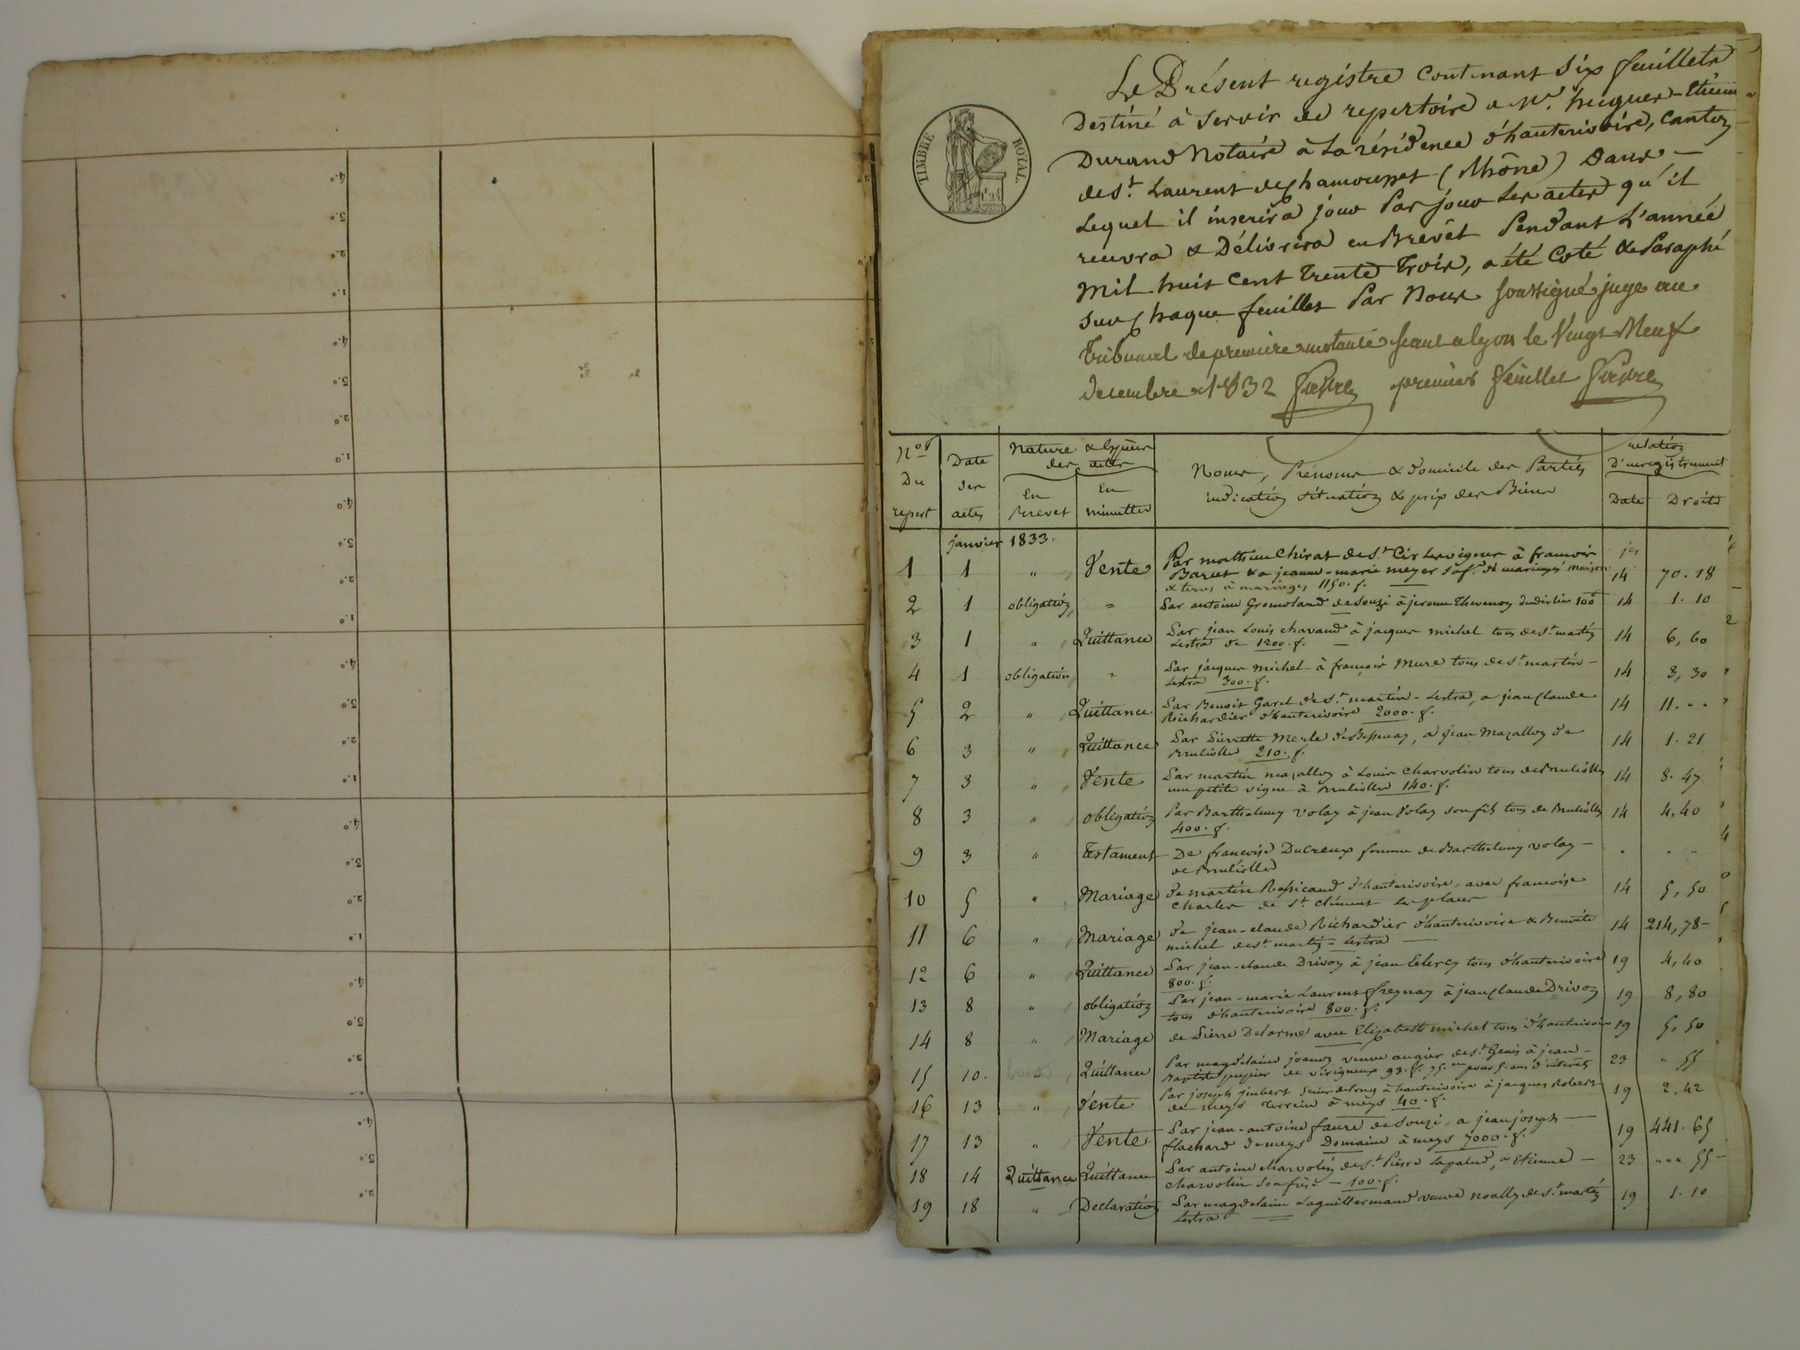 Le Présent registre contenant Six feuillets
Destiné à Servir de repertoire a Mr. Durand Notaire à La résidence d'hauterivoire, Canton
de St. Laurent de Chamousset (Rhône) Dans
Lequel il inserira jour Par jour Les actes qu'il
recevra & Délivrera en Brevet Pendant L'année
Mil huit Cent Trente Trois, a été Coté & Paraphé
Sur Chaque feuillet Par Nous Soussigné juge au
Tribunal de premiere instance Seant a lyon le Vingt Neuf
decembre 1832 premier feuillet
TIMBRE ROYAL
Nos Du repert
Date des actes
Nature & Espèces des actes
En Brevet
En minutte
Noms, Prénoms & domicile des Parties
indication situation & prix des Biens
relation D'enregistrement
Date
Droits
janvier 1833.
1 1 " Vente Par mathieu Chirat de St. Cir Les vignes à francois
& a jeanne-marie meyer Sa fe. de maringes maison
& terres à maringes 1150. f. 14 70. 18
2 1 obligation " Par antoine de Souzi à jerome Thevenon 14 1. 10
3 1 " Quittance Par jean Louis chavand à jacques michel tous de St. martin
Lestra de 1200. f. 14 6, 60
4 1 obligation " Par jacques michel à françois Mure tous de St. martin
Lestra 300. f. 14 3, 30
5 2 " Quittance Par Benoit Garel de St. martin-Lestra, a jean Claude
Richardier d'hauterivoire 2000. f. 14 11. - -
6 3 " Quittance Par Pierrette Merle de Bessenay, a jean Mazallon de
Bruliolle 210. f. 14 1. 21
7 3 " Vente Par martin mazallon à Louis Charvolin tous de Brulliolle
une petite vigne à Brulliolle 140. f. 14 8. 47
8 3 " obligation Par Barthelemy volay à jean Volay son fils tous de Brulliolle
400. f. 14 4, 40
9 3 " Testament De francoise Ducreux femme de Barthelemy volay
de Brulliolle
10 5 " Mariage de martin d'hauterivoire avec francoise
Charles de St. Clément Les places 14 5, 50
11 6 " Mariage de jean-claude Richardier d'hauterivoire & Benoite
michel de St. martin-Lestra 14 214, 78
12 6 " Quittance Par jean-claude Drivon à jean tous d'hauterivoire
800. f. 19 4, 40
13 8 " obligation Par jean-marie Laurent à jean Claude Drivon
tous d'hauterivoire 800. f. 19 8, 80
14 8 " Mariage de Pierre Delorme avec Elizabeth michel tous d'hauterivoire 19 5, 50
15 10. " Quittance Par magdelaine veuve augier de St. Genis à jean-
Baptiste de virigneux 93. f. 75. c pour 5. ans d'interets 23 " 55
16 13 " Vente Par joseph à hauterivoire à jacques Robert
de meys Terrein à meys 40. f. 19 2. 42
17 13 " Vente Par jean-antoine faure de Souzi, a jean joseph
flachard de meys Domaine à meys 7000. f. 19 441. 65
18 14 Quittance Quittance Par antoine charvolin de St. Pierre Lapalud, a Etienne
Charvolin Son frere 100. f. 23 55
19 18 " Declaration Par magdelaine veuve de St. martin
Lestra 19 1. 10